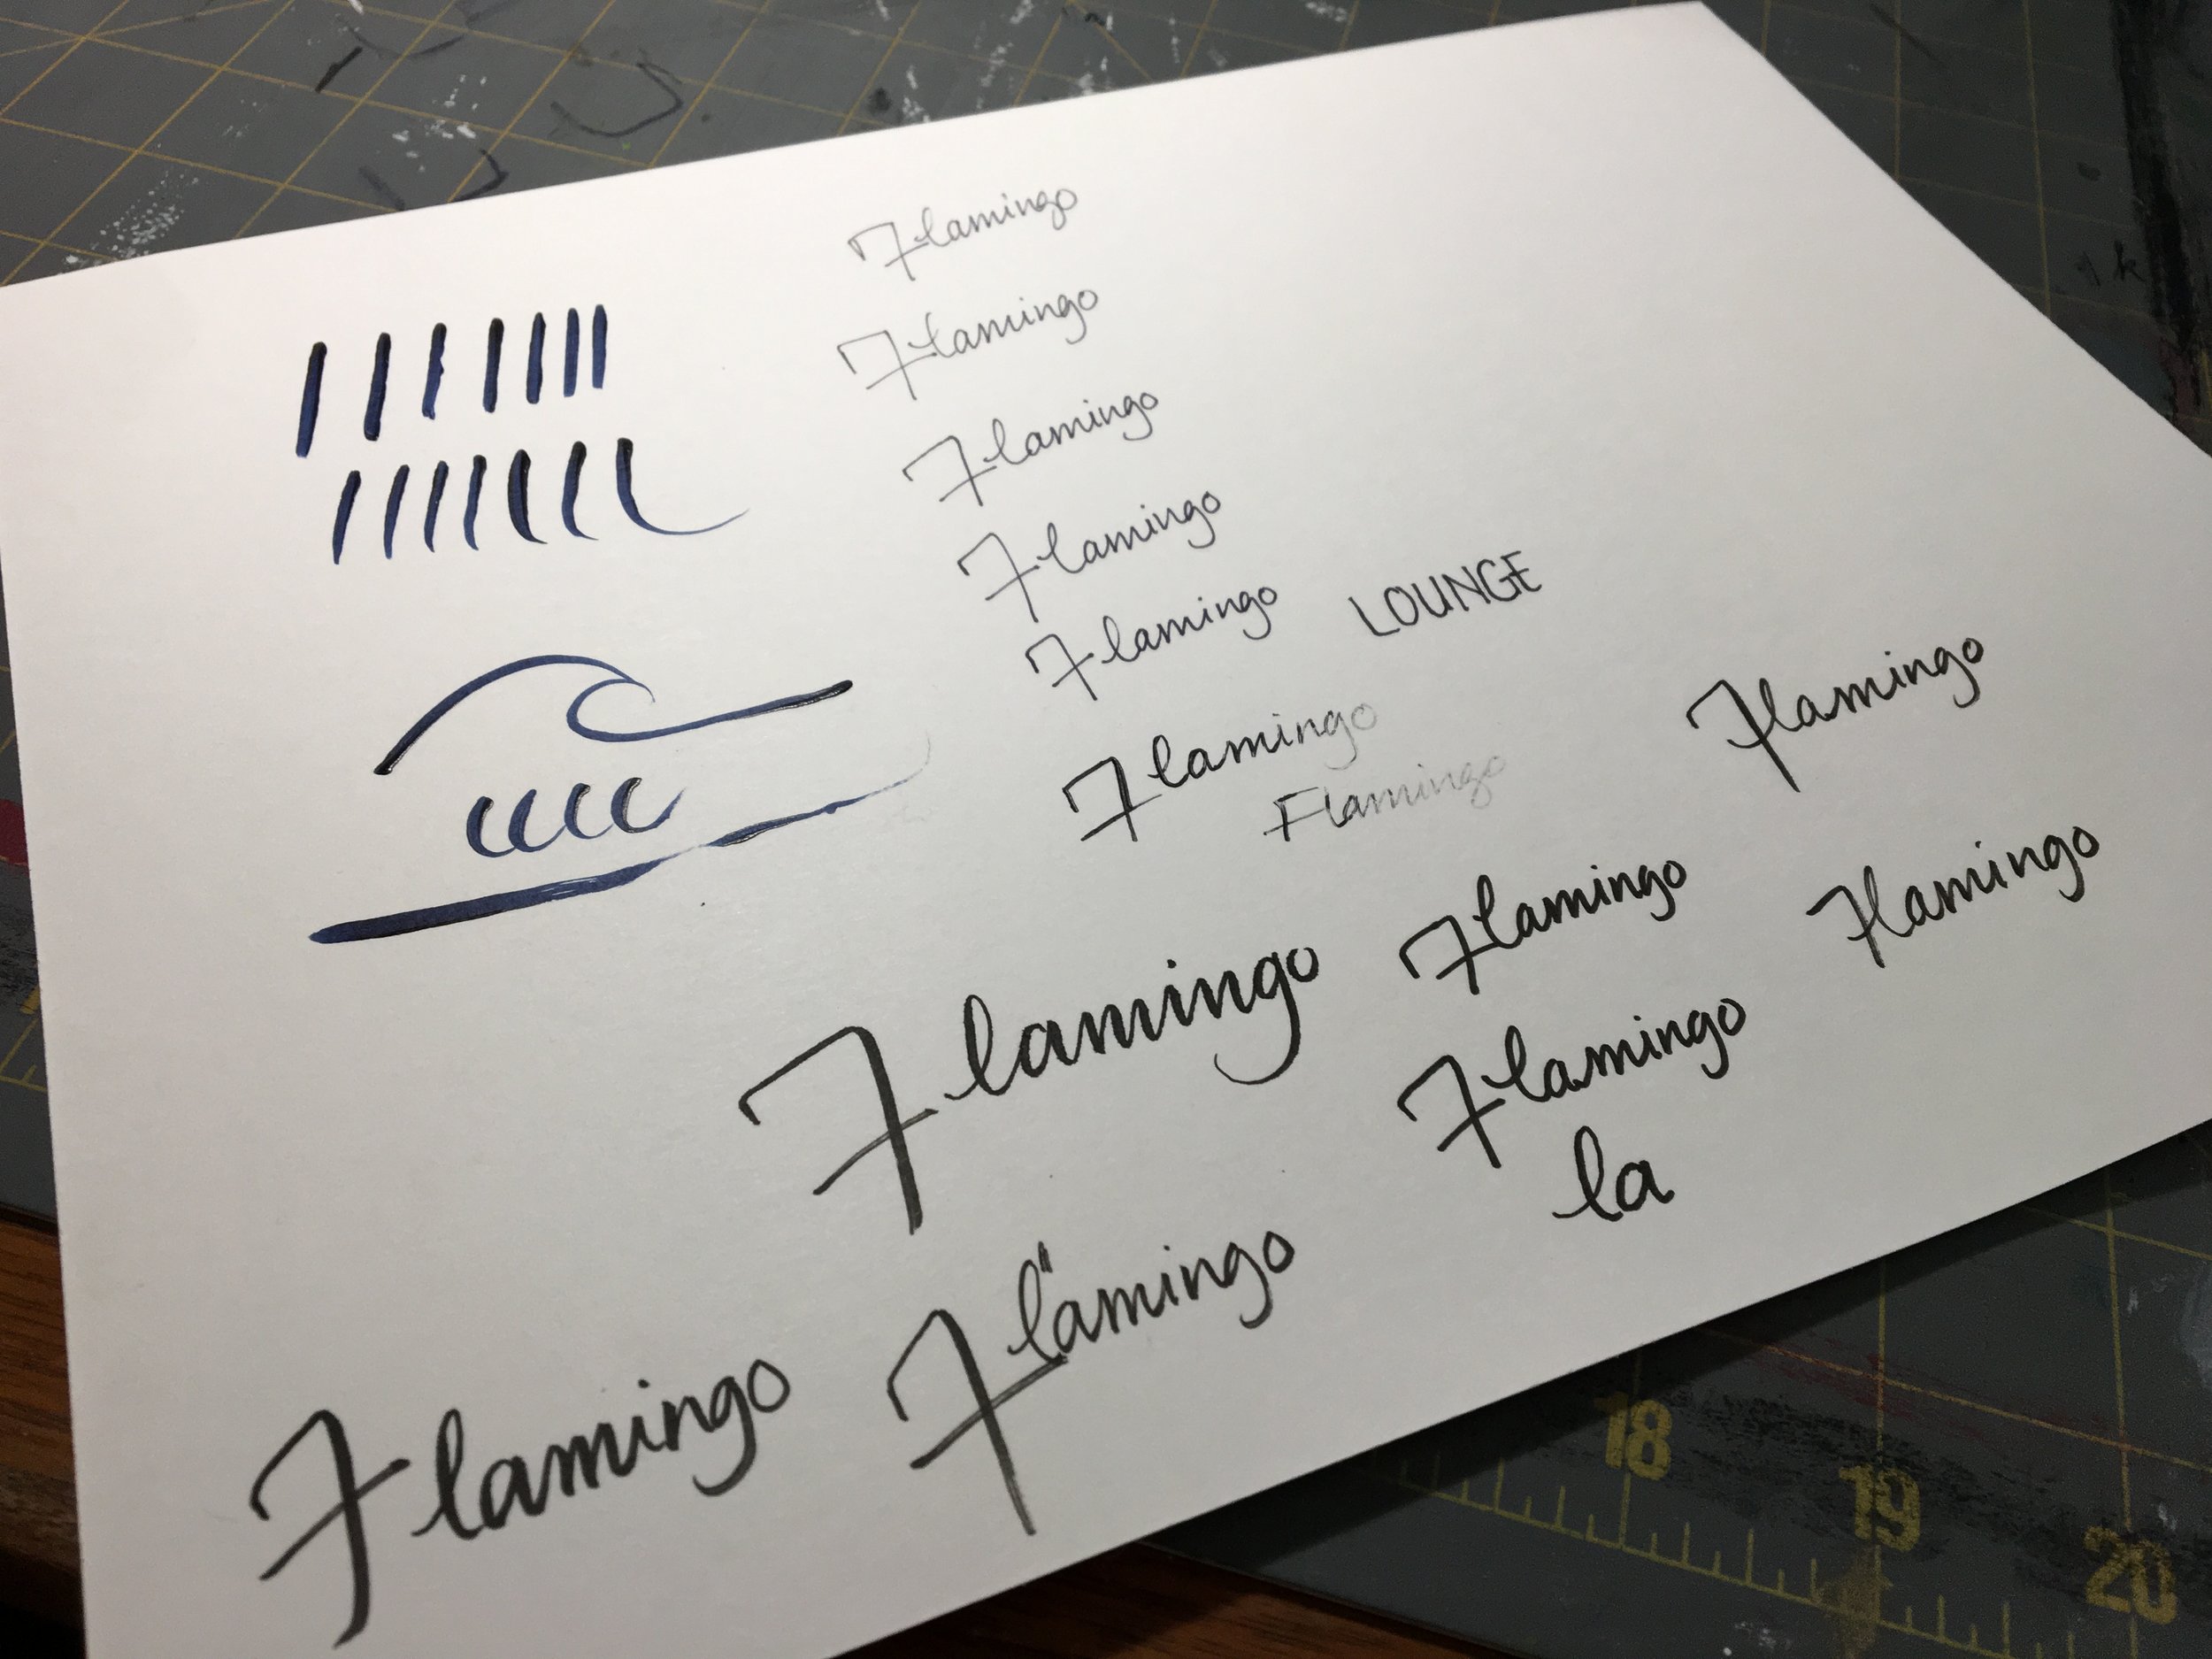 Flamingo
Flamingo
Flamingo
Flamingo
Flamingo LOUNGE
Flamingo
Flamingo
Flamingo
Flamingo
Flamingo
Flamingo
Flamingo
la
Flamingo
Flamingo
18
19
20